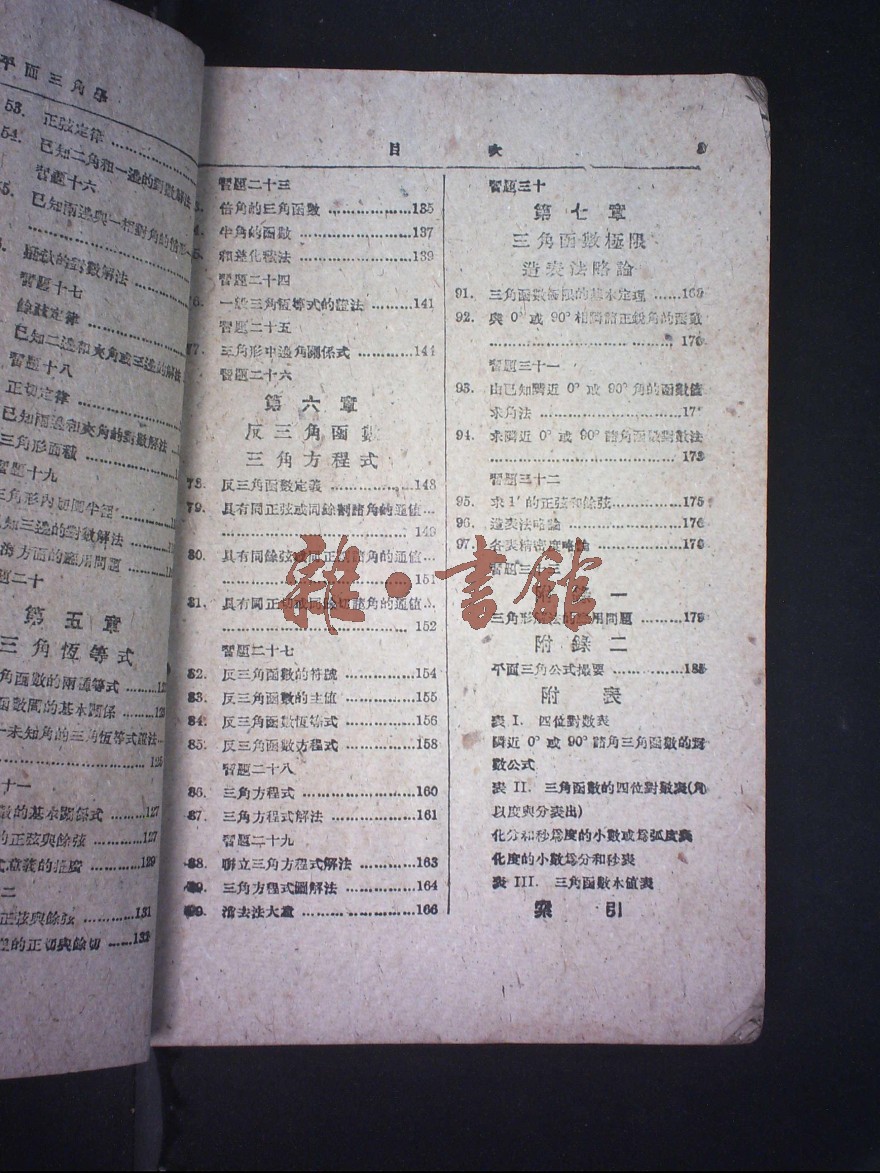 平面三角學
53. 正弦定律
54. 已知二角和一邊的對數解法
習題十六
已知兩邊與一相對角的情形
的對數解法
習題十七
餘弦定律
已知二邊和夾角或三邊的解法
習題十八
正切定律
已知兩邊和夾角的對數解法
三角形面積
習題十九
三角形內切圓半徑
知三邊的對數解法
海方面的應用問題
題二十
第五章
三角恆等式
角函數的兩
函數間的基本關係
一未知角的三角恆等式證法
125
十一
數的基本關係式 127
的正弦與餘弦 127
式意義的推廣 129
二
正弦與餘弦 131
的正切與餘切 132
目 次 3
習題二十三
倍角的三角函數 135
半角的函數 137
和差化積法 139
習題二十四
一般三角恆等式的證法 141
習題二十五
三角形中邊角關係式 144
習題二十六
第六章
反三角函數
三角方程式
78. 反三角函數定義 148
79. 具有同正弦或同餘割諸角的通值
149
80. 具有同餘弦或同正割諸角的通值
151
81. 具有同正切或同餘切諸角的通值
152
習題二十七
82. 反三角函數的符號 154
83. 反三角函數的主值 155
84. 反三角函數恆等式 156
85. 反三角函數方程式 158
習題二十八
86. 三角方程式 160
87. 三角方程式解法 161
習題二十九
88. 聯立三角方程式解法 163
89. 三角方程式圖解法 164
90. 消去法大意 166
習題三十
第七章
三角函數極限
造表法略論
91. 三角函數極限的基本定理 169
92. 與 0° 或 90° 相隣諸正銳角的函數
170
習題三十一
93. 由已知隣近 0° 或 90° 角的函數值
求角法 17
94. 求隣近 0° 或 90° 諸角函數對數法
173
習題三十二
95. 求 1′ 的正弦和餘弦 175
96. 造表法略論 176
97. 各表精密度略論
習題三十三
附錄一
三角形定法的應用問題 179
附錄二
平面三角公式撮要 185
附 表
表 I. 四位對數表
隣近 0° 或 90° 諸角三角函數的對
數公式
表 II. 三角函數的四位對數表(角
以度與分表出)
化分和秒爲度的小數或爲弧度表
化度的小數爲分和秒表
表 III. 三角函數本值表
索 引
雜·書館